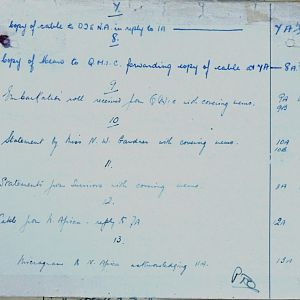 7
Copy of cable to DJENA. in reply to 1A 7A
8.
Copy of Memo to Q.M.I.C. forwarding copy of cable at 7A 8A
9
Embarkation roll received from with covering memo. 9A
9B
10
Statement by Miss N. W. Gardner with covering memo. 10A
10B
11.
Statements from Survivors with covering memo.
12.
Cable from N. Africa - reply to 7A
13.
Microgram N. Africa acknowledging 11A. 13A
PTO